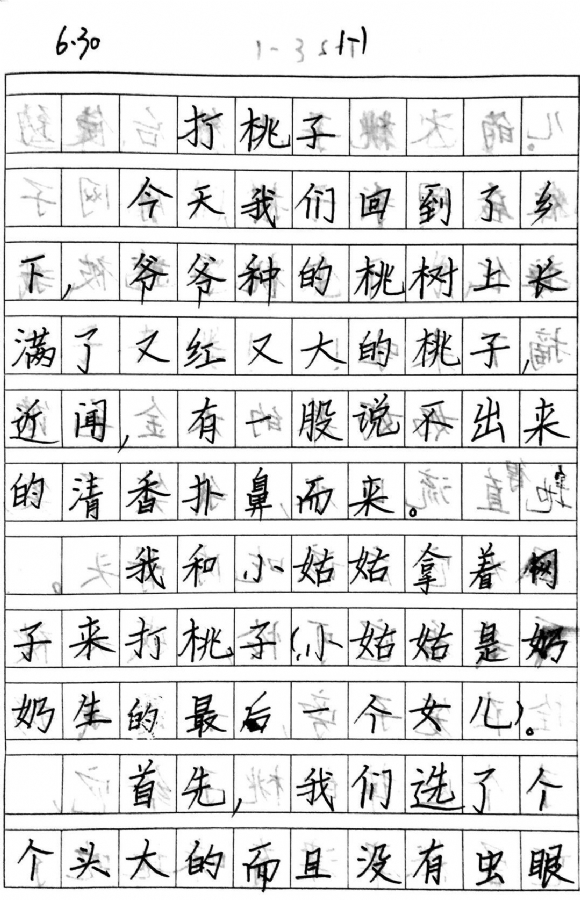 6.30
打桃子
今天我们回到了乡
下，爷爷种的桃树上长
满了又红又大的桃子，
近闻，有一股说不出来
的清香扑鼻而来。
我和小姑姑拿着网
子来打桃子（小姑姑是奶
奶生的最后一个女儿）。
首先，我们选了个
个头大的而且没有虫眼